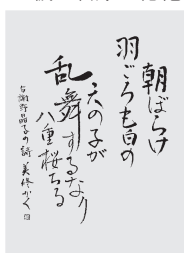 朝ぼらけ
羽ごろも白の
天の子が
乱舞するなり
八重桜ちる
与謝野晶子の詩 美修かく